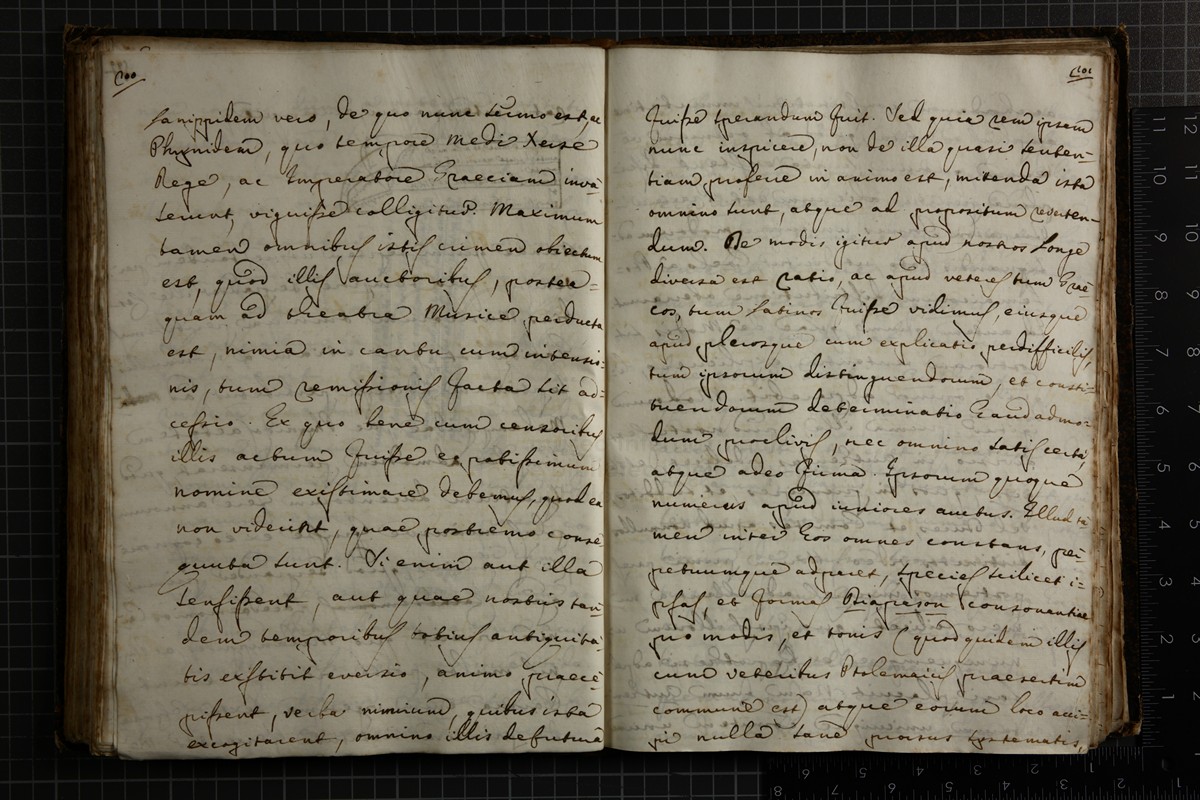 100
Lanippidem vero, de quo nunc sermo est, ac
Phrynidem, quo tempore Medi Xerse
Rege, ac Imperatore Graeciam inva-
serunt, viguisse colligitur. Maximum
tamen omnibus istis crimen obiectum
est, quod illis auctoribus, postea=
quam ad theatra Musice perducta
est, nimia in cantu cum intensio=
nis, tum remissionis facta sit ad-
cessio. Ex quo bene cum censoribus
illis actum fuisse et potissimum
nomine existimare debemus, quod ea
non viderint, quae postremo conse
quuta sunt. Si enim aut illa
sensissent, aut quae nostris tan
dem temporibus totius antiquita-
tis exstitit eversio, animo praece-
pissent, verba nimium, quibus ista
excogitarent, omnino illis defutura
101
fuisse sperandum fuit. Sed quia rem ipsam
nunc inspicere, non de illa quasi senten=
tiam proferre in animo est, mittenda ista
omnino sunt, atque ad propositum reverten-
dum. De modis igitur apud nostros longe
diversa est ratio, ac apud veteres tum Grae-
cos, tum Latinos fuisse vidimus, eiusque
apud plerosque cum explicatio perdifficilis,
tum ipsorum distinguendorum, et consti=
tuendorum determinatio haud admo-
dum proclivis, nec omnino satis certa,
atque adeo firma. Ipsorum quoque
numerus apud iuniores auctus. Illud ta
men inter eos omnes constans, per-
petuumque adparet, species scilicet i-
psas, et formas Diapason consonantiae
pro modis, et tonis (quod quidem illis
cum veteribus Ptolemaicis praesertim
commune est) atque eorum loco acci=
pi nulla sane prorsus systematis,